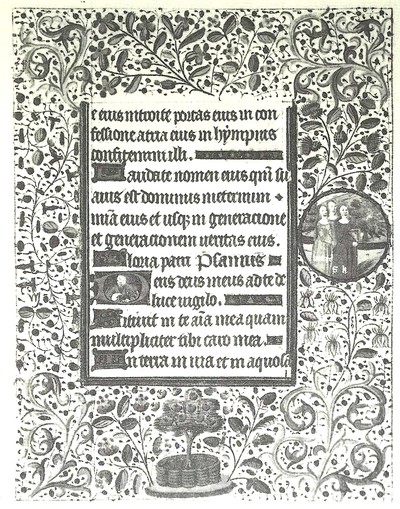 e eius introite portas eius in con
fessione atria eius in hympnis
confitemini illi.
Laudate nomen eius qm̄ su
auis est dominus in eternum
mīa eius et usqꝫ in generacione
et generacionem ueritas eius.
Gloria patri Psalmus
Deus deus meus ad te de
luce uigilo.
Sitiuit in te aīa mea quam
multipliciter tibi caro mea.
In terra in uia et in aquosa